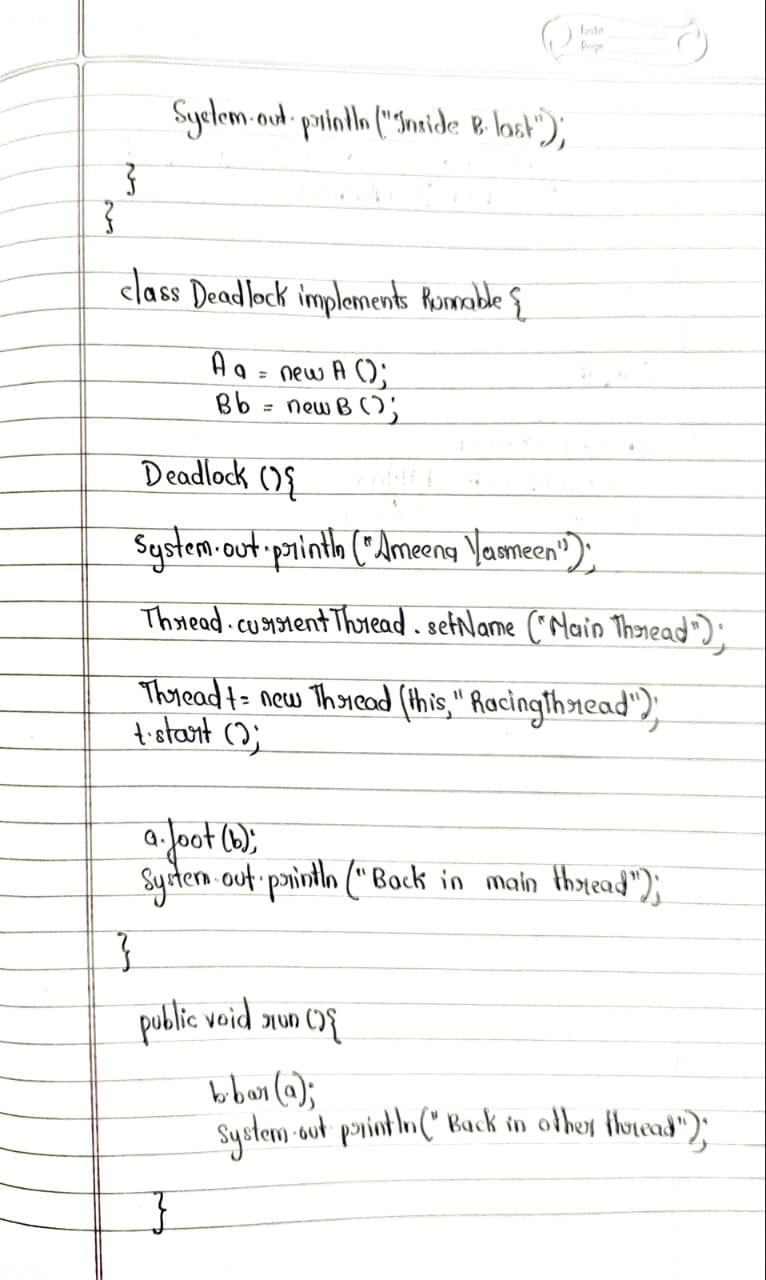 Date
Page
System.out.println("Inside B.last");
}
}
class Deadlock implements Runnable {
A a = new A ();
B b = new B ();
Deadlock (){
System.out.println ("Ameena Yasmeen");
Thread.currentThread.setName ("Main Thread");
Thread t= new Thread (this,"Racingthread");
t.start ();
a.foot(b);
System.out.println ("Back in main thread");
}
public void run (){
b.bar(a);
System.out println(" Back in other thread");
}